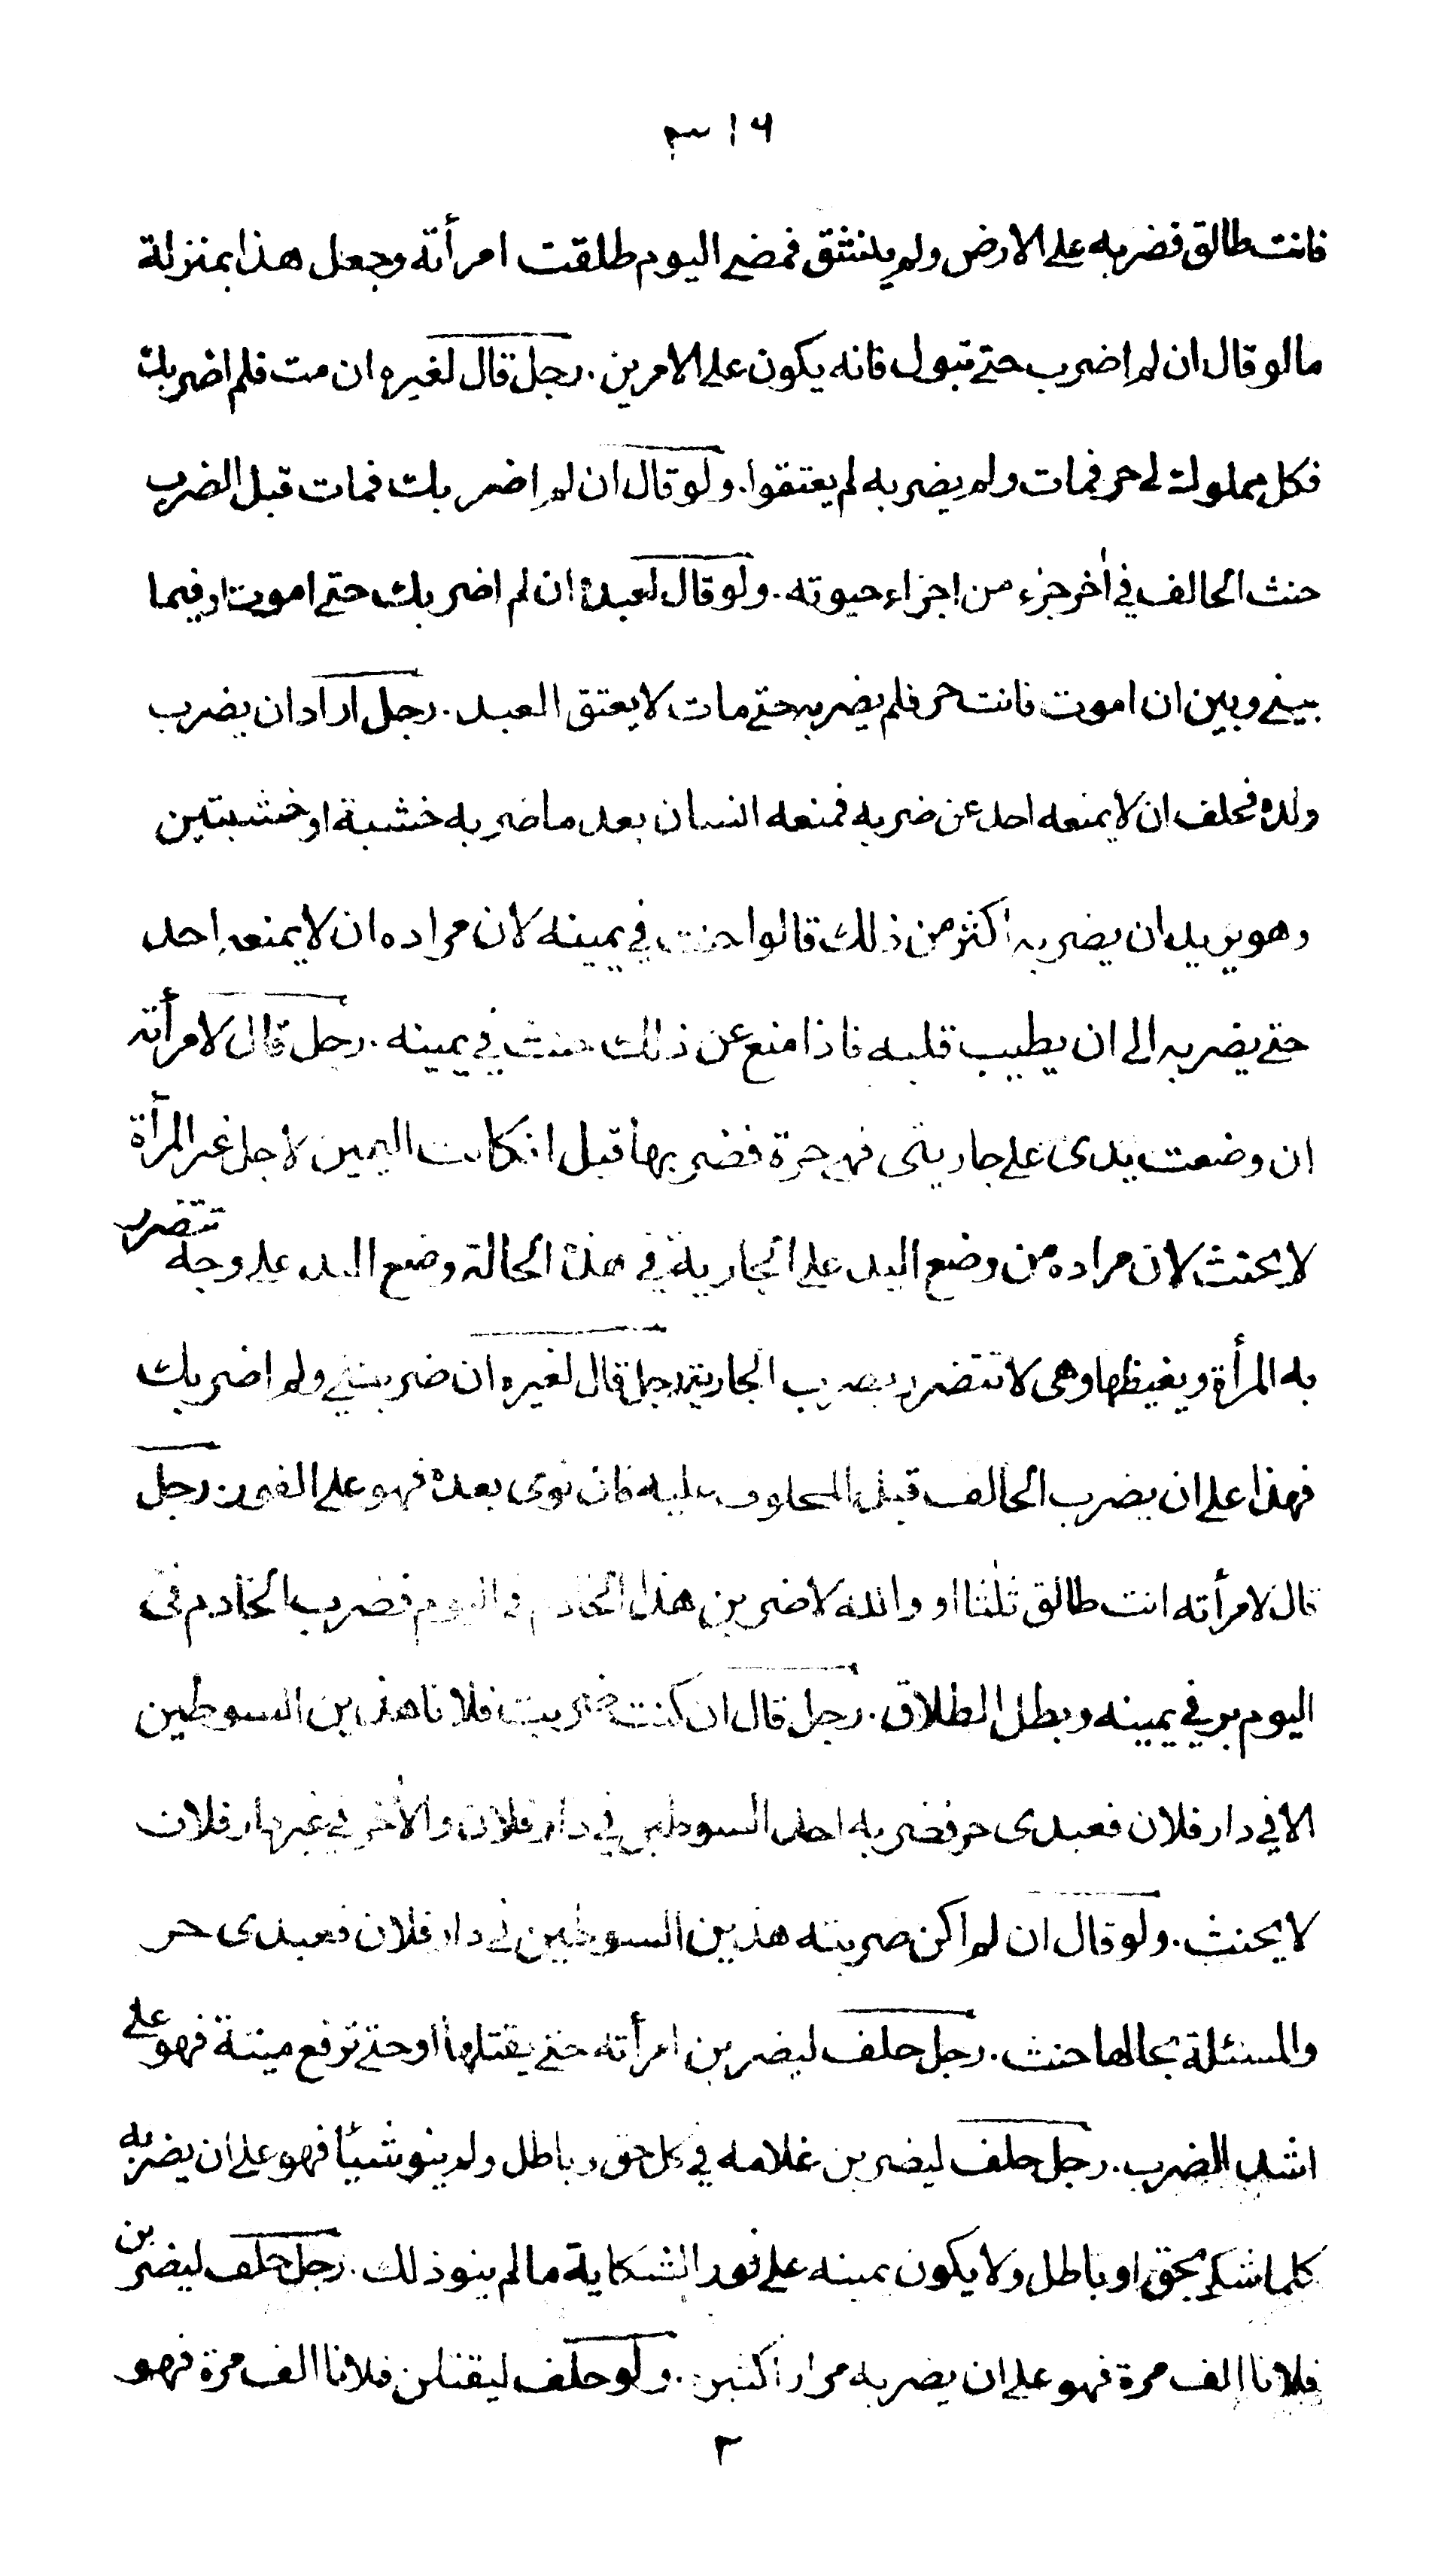 ٣١٦
فانت طالق فضربه على الارض ولم ينشق فمضى اليوم طلقت امرأته وجعل هذا بمنزلة
مالو قال ان لم اضرب حتى تبول فانه يكون على الامرين . رجل قال لغيره ان مت فلم اضربك
فكل مملوك لى حر فمات ولم يضربه لم يعتقوا . ولو قال ان لم اضربك فمات قبل الضرب
حنث الحالف فى اٰخر جزء من اجزاء حيوته . ولو قال لعبده ان لم اضربك حتى اموت او فيما
بينى وبين ان اموت فانت حر فلم يضربه حتى مات لا يعتق العبد . رجل اراد ان يضرب
ولده فحلف ان لا يمنعه احد عن ضربه فمنعه انسان بعد ما ضربه خشبة او خشبتين
وهو يريد ان يضربه اكثر من ذلك قالوا حنث فى يمينه لان مراده ان لا يمنعه احد
حتى يضربه الى ان يطيب قلبه فاذا منع عن ذلك حنث فى يمينه . رجل قال لامرأته
ان وضعت يدى على جاريتى فهى حرة فضربها قيل ان كانت اليمين لاجل غير المرأة
لا يحنث لان مراده من وضع اليد على الجارية فى هذه الحالة وضع اليد على وجه تتضرر
به المرأة ويغيظها وهى لا تتضرر بضرب الجارية رجل قال لغيره ان ضربتنى ولم اضربك
فهذا على ان يضرب الحالف قبل المحلوف عليه فان نوى بعده فهو على الفور . رجل
قال لامرأته انت طالق ثلٰثا او والله لاضربن هذا الخادم فى اليوم فضرب الخادم فى
اليوم بر فى يمينه وبطل الطلاق . رجل قال ان كنت ضربت فلانا هذين السوطين
الا فى دار فلان فعبدى حر فضربه احد السوطين فى دار فلان والاٰخر فى غير دار فلان
لا يحنث . ولو قال ان لم اكن ضربته هذين السوطين فى دار فلان فعبدى حر
والمسئلة بحالها حنث . رجل حلف ليضربن امرأته حتى يقتلها او حتى ترفع ميتة فهو على
اشد الضرب . رجل حلف ليضربن غلامه فى كل حق وباطل ولم ينو شيئا فهو على ان يضربه
كلما شكى بحق او باطل ولا يكون يمينه على فور الشكاية مالم ينو ذلك . رجل حلف ليضربن
فلانا الف مرة فهو على ان يضربه مرارا كثيرة . ولو حلف ليقتلن فلانا الف مرة فهو
٣